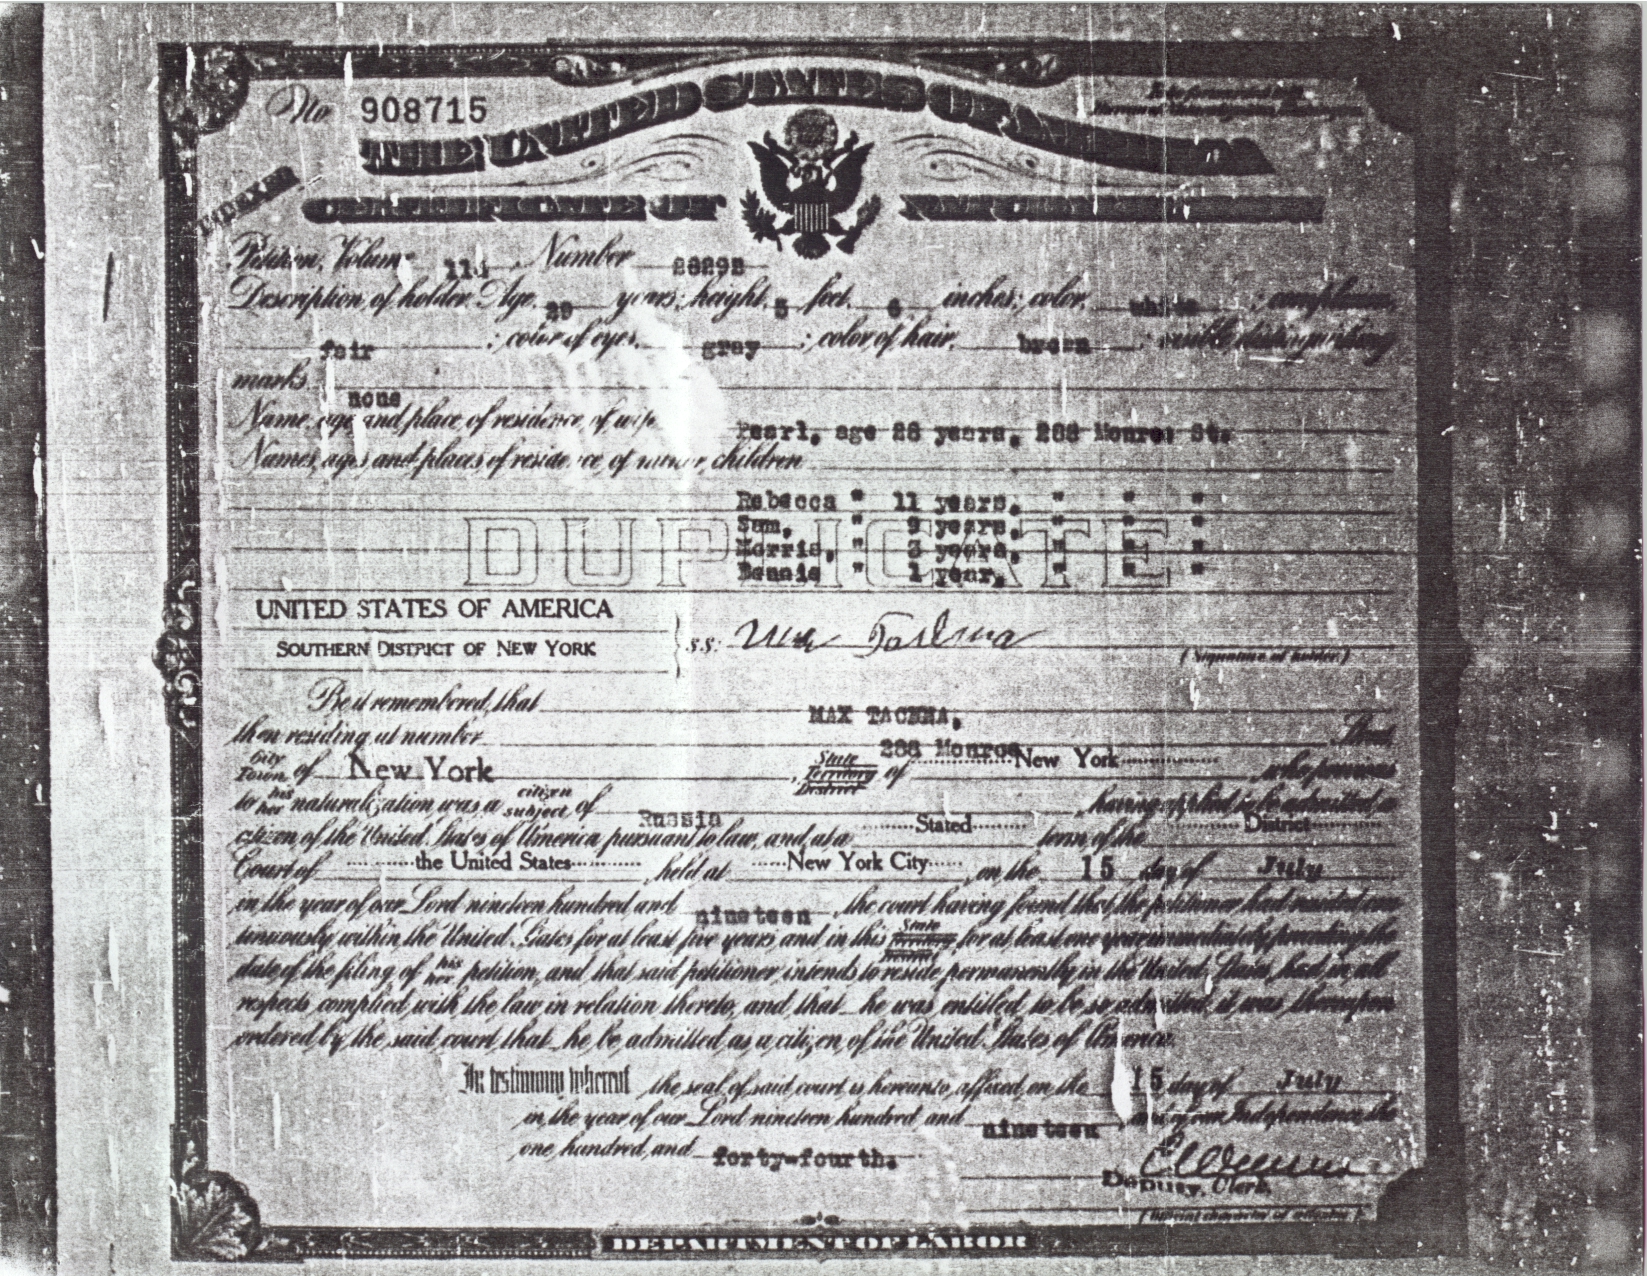 No. 908715
THE UNITED STATES OF AMERICA
INDEXED
CERTIFICATE OF
Petition, Volume Number
Description of holder. Age, 29 years; height, 5 feet, 6 inches; color, white ; complexion,
fair ; color of eyes, gray ; color of hair, brown ; visible distinguishing
marks none
Name, age and place of residence of wife Pearl, age 28 years, 288 Monroe St.
Names, ages and places of residence of minor children
Rebecca " 11 years, " " "
Sam, " 9 years, " " "
Morris, " 3 years, " " "
Bennie " 1 year, " " "
DUPLICATE
UNITED STATES OF AMERICA
SOUTHERN DISTRICT OF NEW YORK
s.s:
(Signature of holder.)
Be it remembered, that MAX
then residing at number 288 Monroe Street
City Town of New York , State Territory District of New York , who previous
to his her naturalization was a citizen subject of Russia , having applied to be admitted a
citizen of the United States of America pursuant to law, and at a Stated term of the District
Court of the United States , held at New York City , on the 15 day of July
in the year of our Lord nineteen hundred and nineteen , the court having found that the petitioner had resided con
tinuously within the United States for at least five years and in this State Territory District for at least one year immediately preceding the
date of the filing of his her petition, and that said petitioner intends to reside permanently in the United States, had in all
respects complied with the law in relation thereto, and that he was entitled to be so admitted, it was thereupon
ordered by the said court that he be admitted as a citizen of the United States of America.
In testimony whereof the seal of said court is hereunto affixed on the 15 day of July
in the year of our Lord nineteen hundred and nineteen , and of our Independence the
one hundred and forty-fourth.
Deputy, Clerk.
(Official character of attestor.)
DEPARTMENT OF LABOR